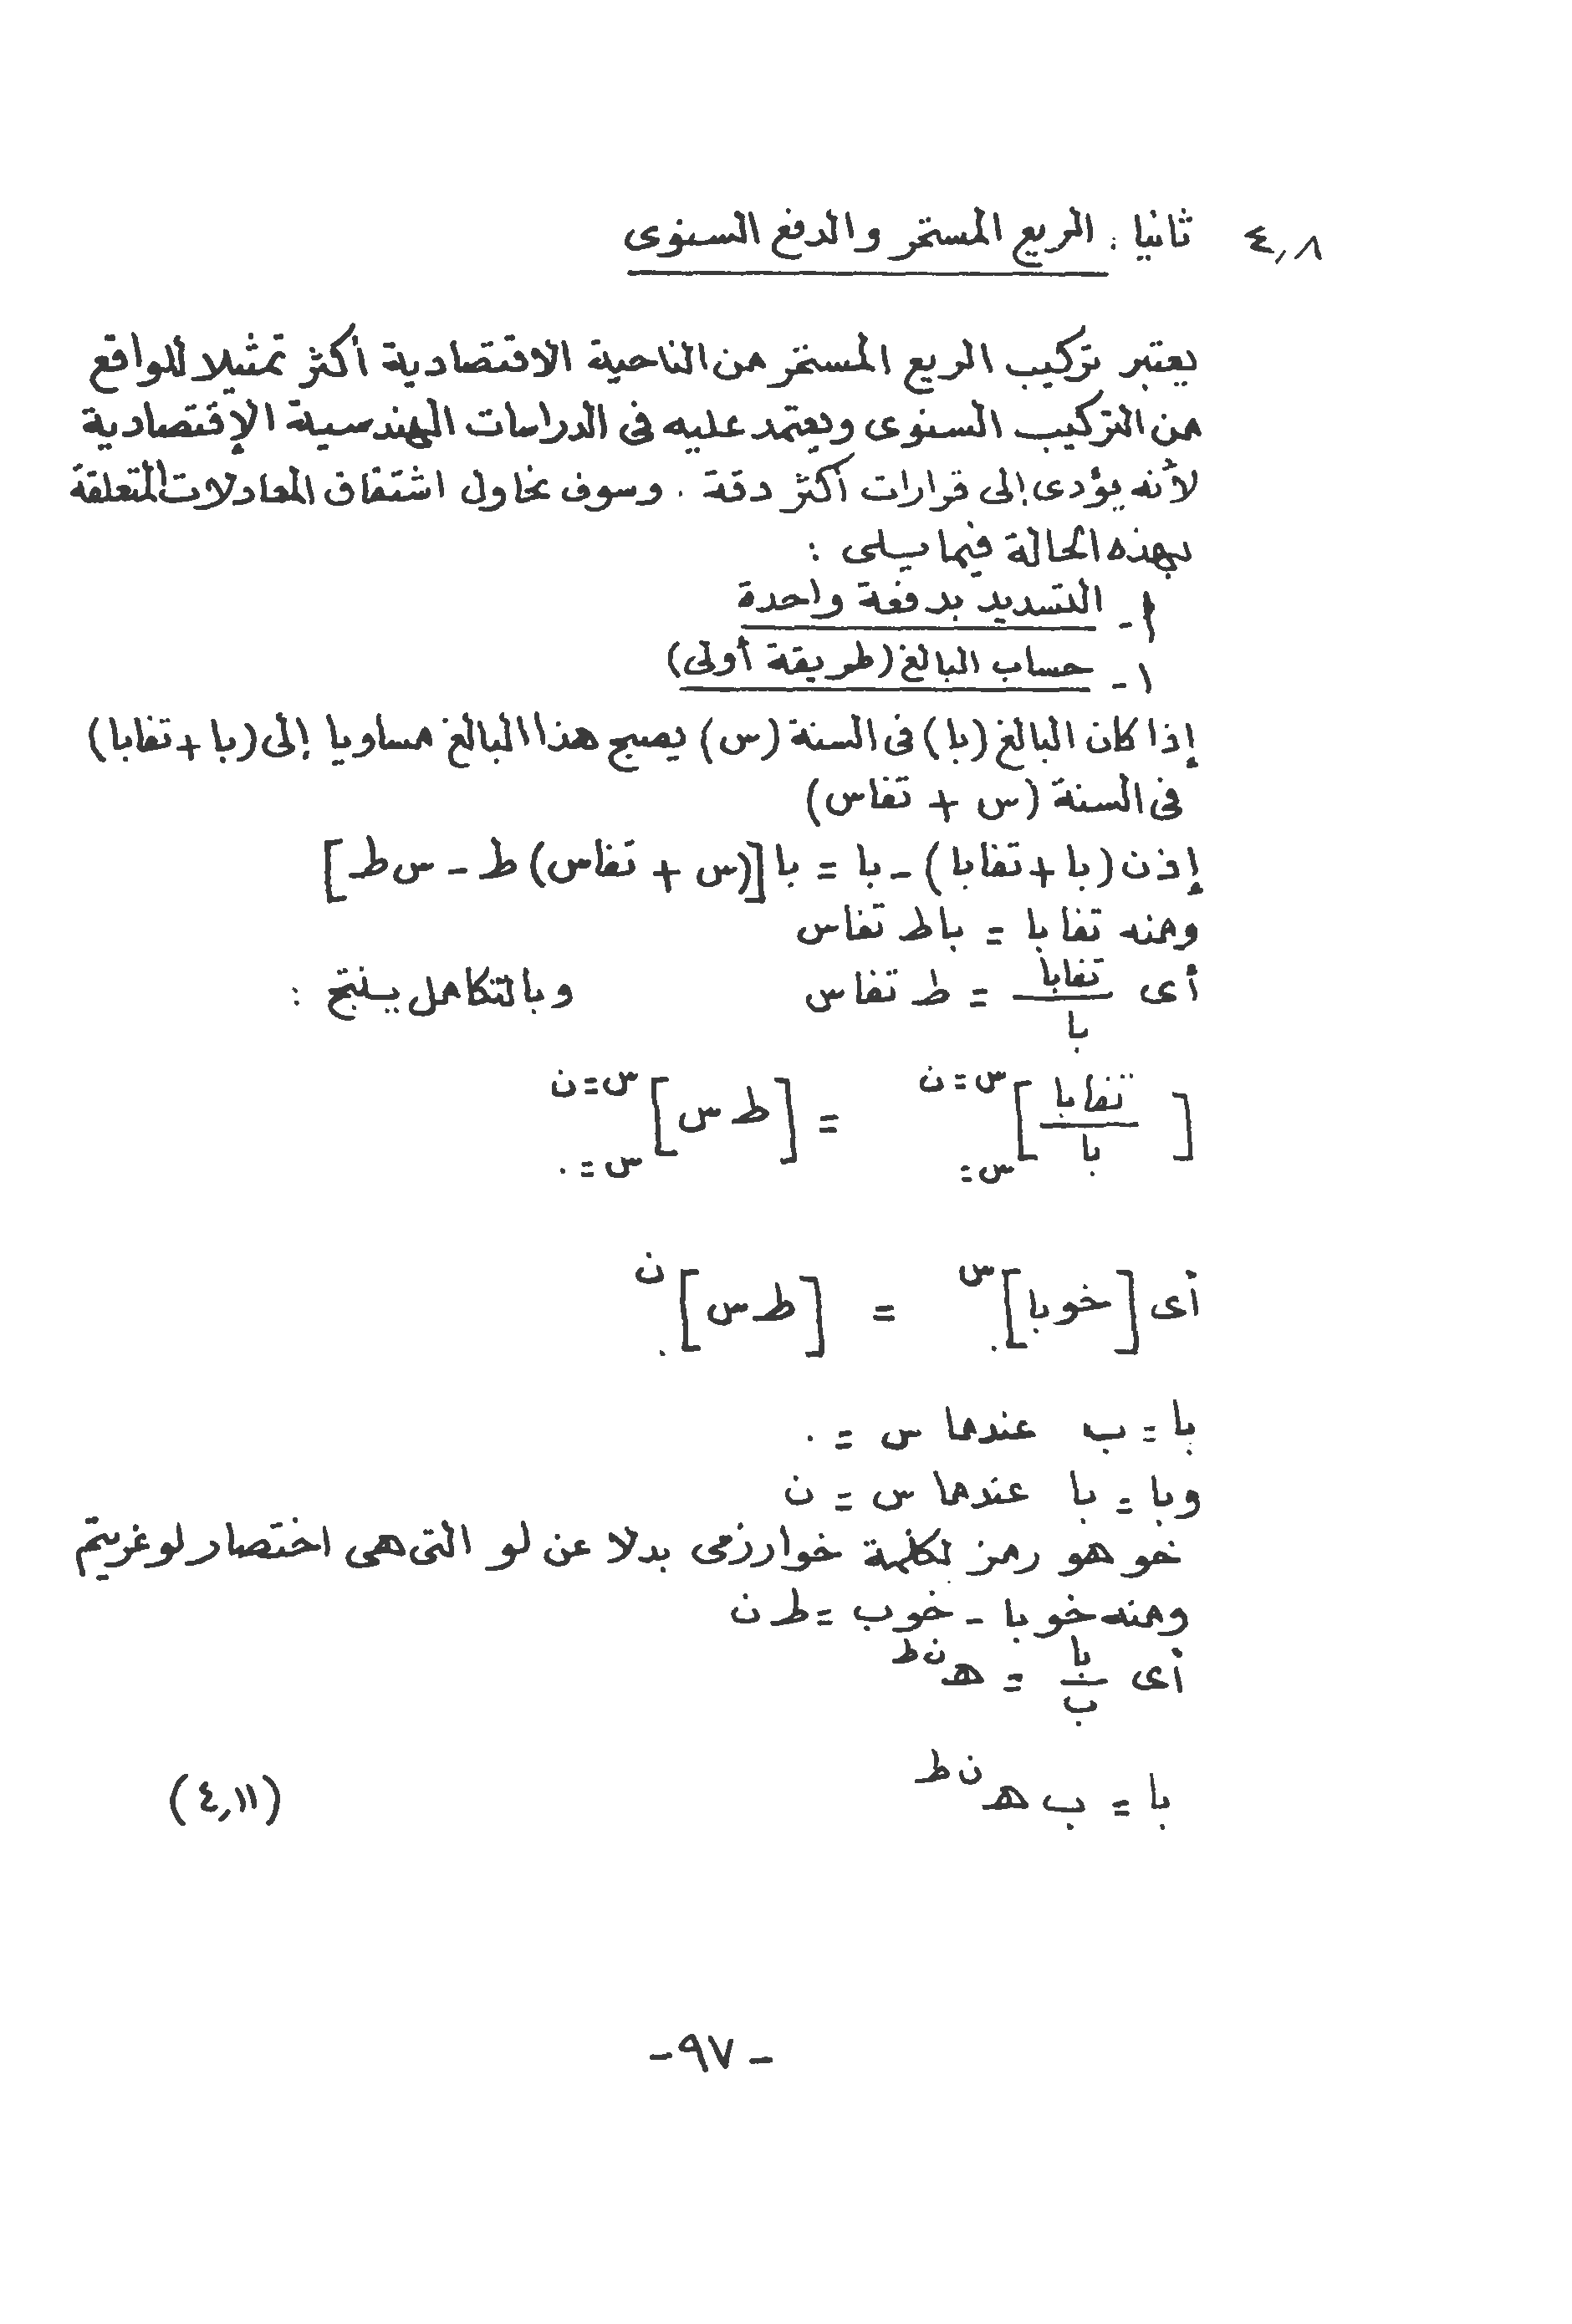 ٤,٨ ثانيا : الريع المستمر والدفع السنوى
يعتبر تركيب الريع المستمر من الناحية الاقتصادية أكثر تمثيلا للواقع
من التركيب السنوى ويعتمد عليه فى الدراسات الهندسية الإقتصادية
لأنه يؤدى إلى قرارات أكثر دقة . وسوف نحاول اشتقاق المعادلات المتعلقة
بهذه الحالة فيما يلى :
أ - التسديد بدفعة واحدة
١ - حساب البالغ (طريقة أولى)
إذا كان البالغ (با) فى السنة (س) يصبح هذا البالغ مساويا إلى (با + تفابا)
فى السنة (س + تفاس)
إذن (با + تفابا) - با = با [(س + تفاس) ط - س ط]
ومنه تفابا = با ط تفاس
أى تفابا / با = ط تفاس وبالتكامل ينتج :
[تفابا / با] س = ن س = = [ط س] س = ن س = ٠
أى [خوبا] س ٠ = [ط س] ن ٠
با = ب عندما س = ٠
وبا = با عندما س = ن
خو هو رمز لكلمة خوارزمى بدلا عن لو التى هى اختصار لوغريتم
ومنه خوبا - خوب = ط ن
أى با / ب = هـ ن ط
با = ب هـ ن ط (٤,١١)
- ٩٧ -